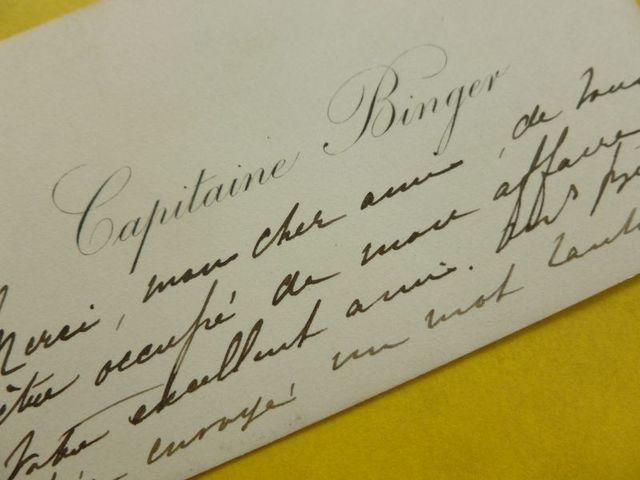 Capitaine Binger
Merci, mon cher ami, de
être occupé de mon affaire
Votre excellent ami.
envoyé un mot